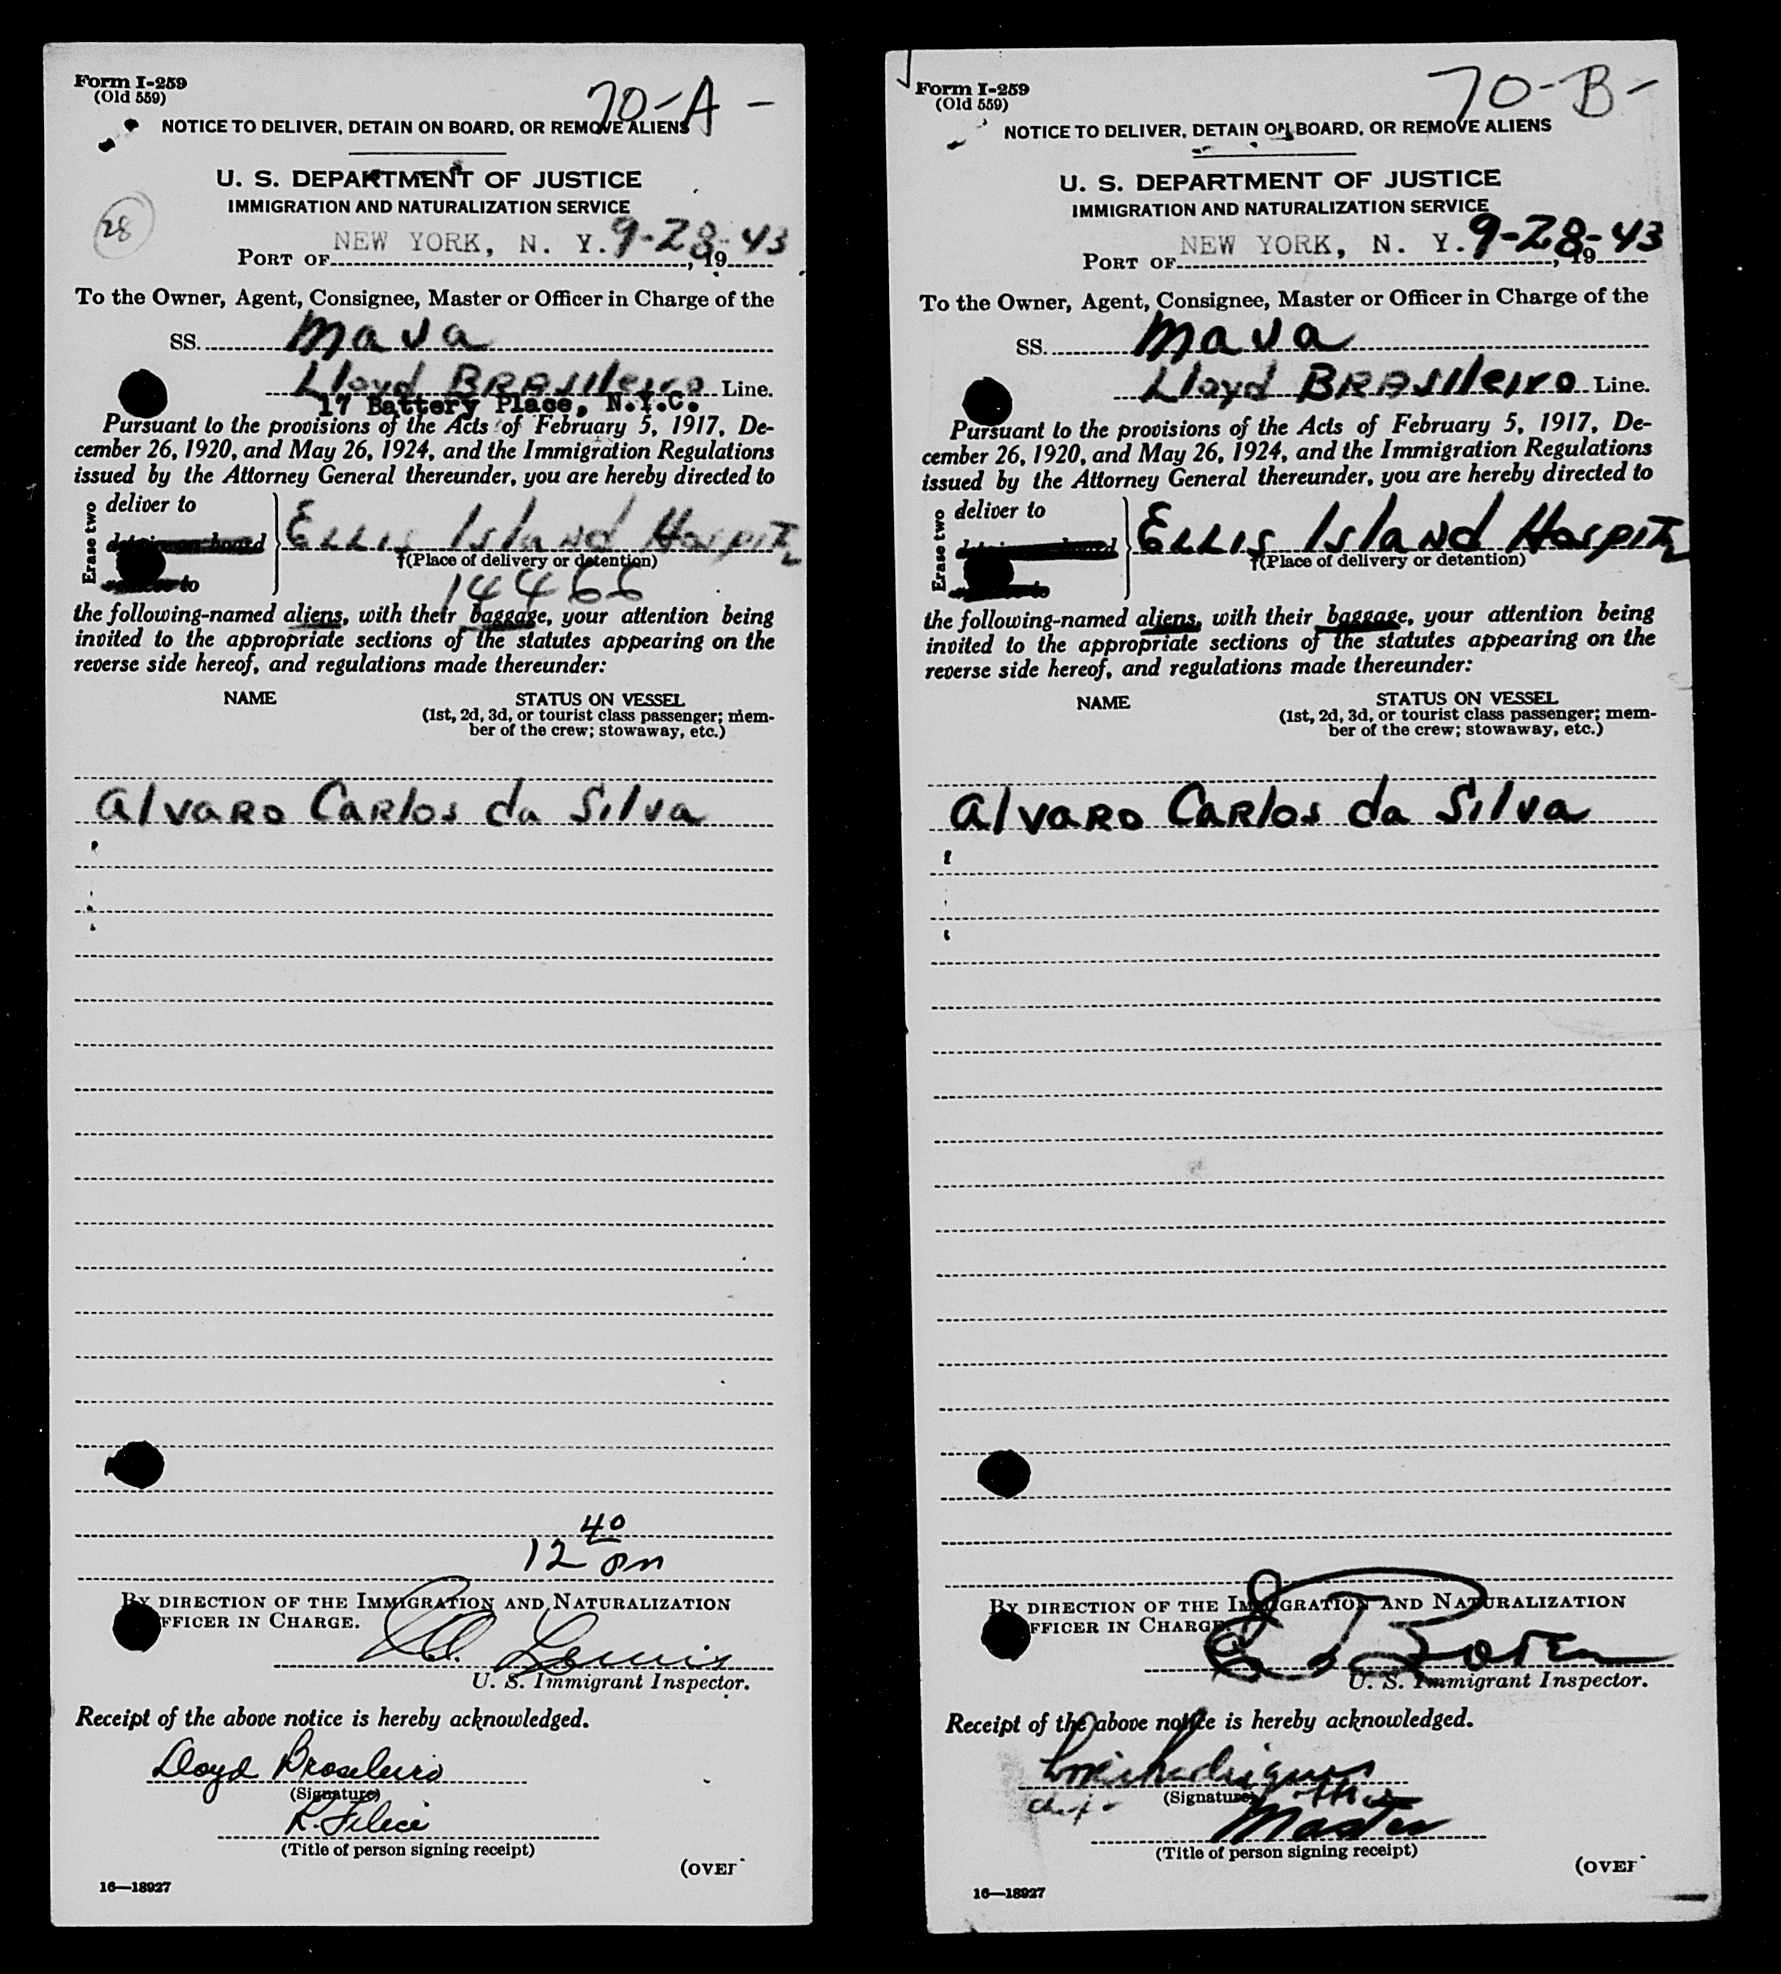 Form I-259
(Old 559)
70-A-
NOTICE TO DELIVER, DETAIN ON BOARD, OR REMOVE ALIENS
U. S. DEPARTMENT OF JUSTICE
IMMIGRATION AND NATURALIZATION SERVICE
28
PORT OF NEW YORK, N. Y. 9-28-43, 19
To the Owner, Agent, Consignee, Master or Officer in Charge of the
SS. Mava
Lloyd BRASileiro Line.
17 Battery Place, N.Y.C.
Pursuant to the provisions of the Acts of February 5, 1917, De-
cember 26, 1920, and May 26, 1924, and the Immigration Regulations
issued by the Attorney General thereunder, you are hereby directed to
Erase two
deliver to
detain on board
to
ELLIS Island Hospital
†(Place of delivery or detention)
14466
the following-named aliens, with their baggage, your attention being
invited to the appropriate sections of the statutes appearing on the
reverse side hereof, and regulations made thereunder:
NAME STATUS ON VESSEL
(1st, 2d, 3d, or tourist class passenger; mem-
ber of the crew; stowaway, etc.)
alvaro Carlos da Silva
12 40 pm
BY DIRECTION OF THE IMMIGRATION AND NATURALIZATION
FFICER IN CHARGE.
Lewis
U. S. Immigrant Inspector.
Receipt of the above notice is hereby acknowledged.
Lloyd Brasileiro
(Signature)
R. Felice
(Title of person signing receipt)
(OVER
16—18927
Form I-259
(Old 559)
70-B-
NOTICE TO DELIVER, DETAIN ON BOARD, OR REMOVE ALIENS
U. S. DEPARTMENT OF JUSTICE
IMMIGRATION AND NATURALIZATION SERVICE
PORT OF NEW YORK, N. Y. 9-28-43, 19
To the Owner, Agent, Consignee, Master or Officer in Charge of the
SS. Mava
Lloyd BRASileiro Line.
Pursuant to the provisions of the Acts of February 5, 1917, De-
cember 26, 1920, and May 26, 1924, and the Immigration Regulations
issued by the Attorney General thereunder, you are hereby directed to
Erase two
deliver to
ELLIS Island Hospital
†(Place of delivery or detention)
the following-named aliens, with their baggage, your attention being
invited to the appropriate sections of the statutes appearing on the
reverse side hereof, and regulations made thereunder:
NAME STATUS ON VESSEL
(1st, 2d, 3d, or tourist class passenger; mem-
ber of the crew; stowaway, etc.)
alvaro Carlos da Silva
BY DIRECTION OF THE IMMIGRATION AND NATURALIZATION
FFICER IN CHARGE.
U. S. Immigrant Inspector.
Receipt of the above notice is hereby acknowledged.
(Signature)
Master
(Title of person signing receipt)
(OVER
16—18927